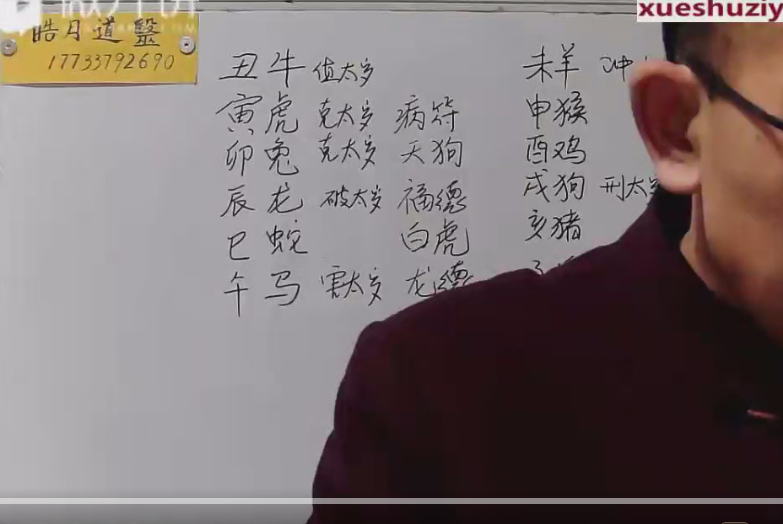 xueshuziy
皓月道醫
17733792690
丑牛 值太岁 未羊 冲
寅虎 克太岁 病符 申猴
卯兔 克太岁 天狗 酉鸡
辰龙 破太岁 福德 戌狗 刑太岁
巳蛇 白虎 亥猪
午马 害太岁 龙德